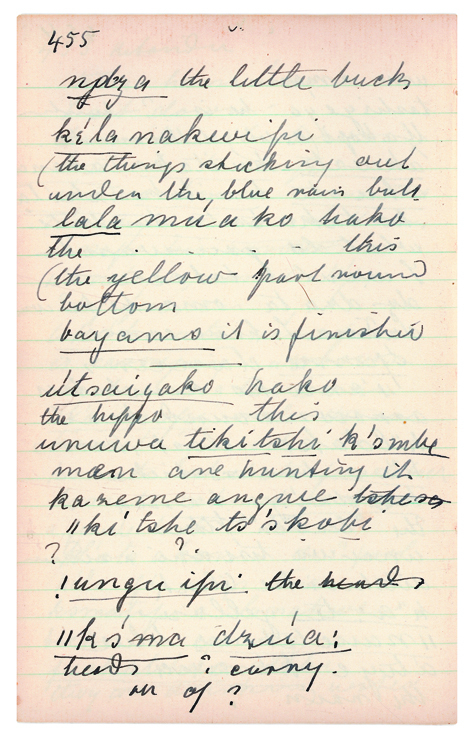 455
the little buck
kéla nakwipi
(the things sticking out
under the blue rain ball
lala mia ko hako
the this
(the yellow part round
bottom
bayamo it is finished
útsaigako hako
the hippo this
unuwa tikitshi k'smbe
men are hunting it
kazeme angwe
"ki'tshe ts'skobi
? ?
!ungu ipi the heads
"k's'ma dzúa:
heads ? carry.
on of ?